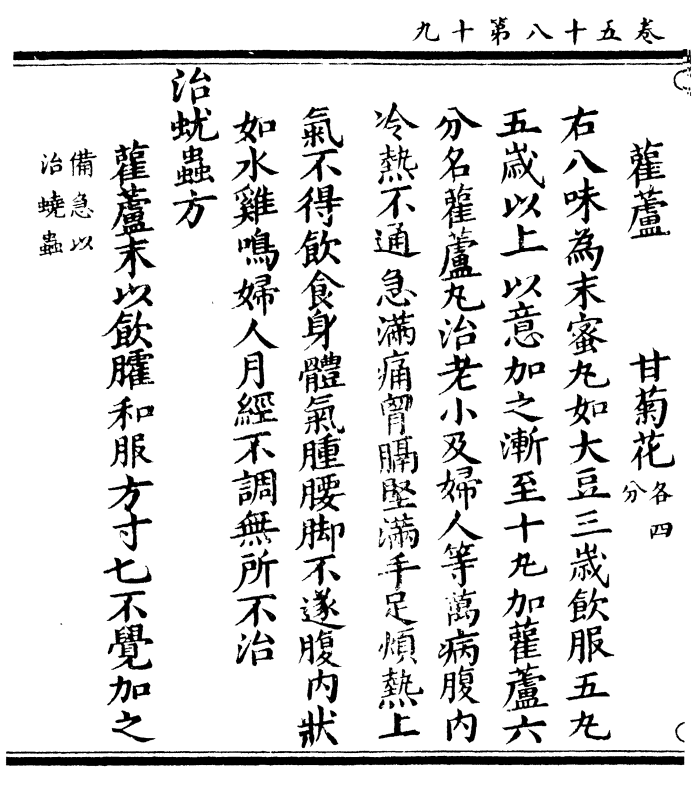 卷五十八第十九
雚蘆　甘菊花各四分
右八味為末蜜丸如大豆三歲飲服五丸
五歲以上以意加之漸至十丸加雚蘆六
分名雚蘆丸治老小及婦人等萬病腹內
冷熱不通急滿痛胷膈堅滿手足煩熱上
氣不得飲食身體氣腫腰脚不遂腹內狀
如水雞鳴婦人月經不調無所不治
治蚘蟲方
雚蘆末以飲臛和服方寸匕不覺加之
備急以
治蟯蟲